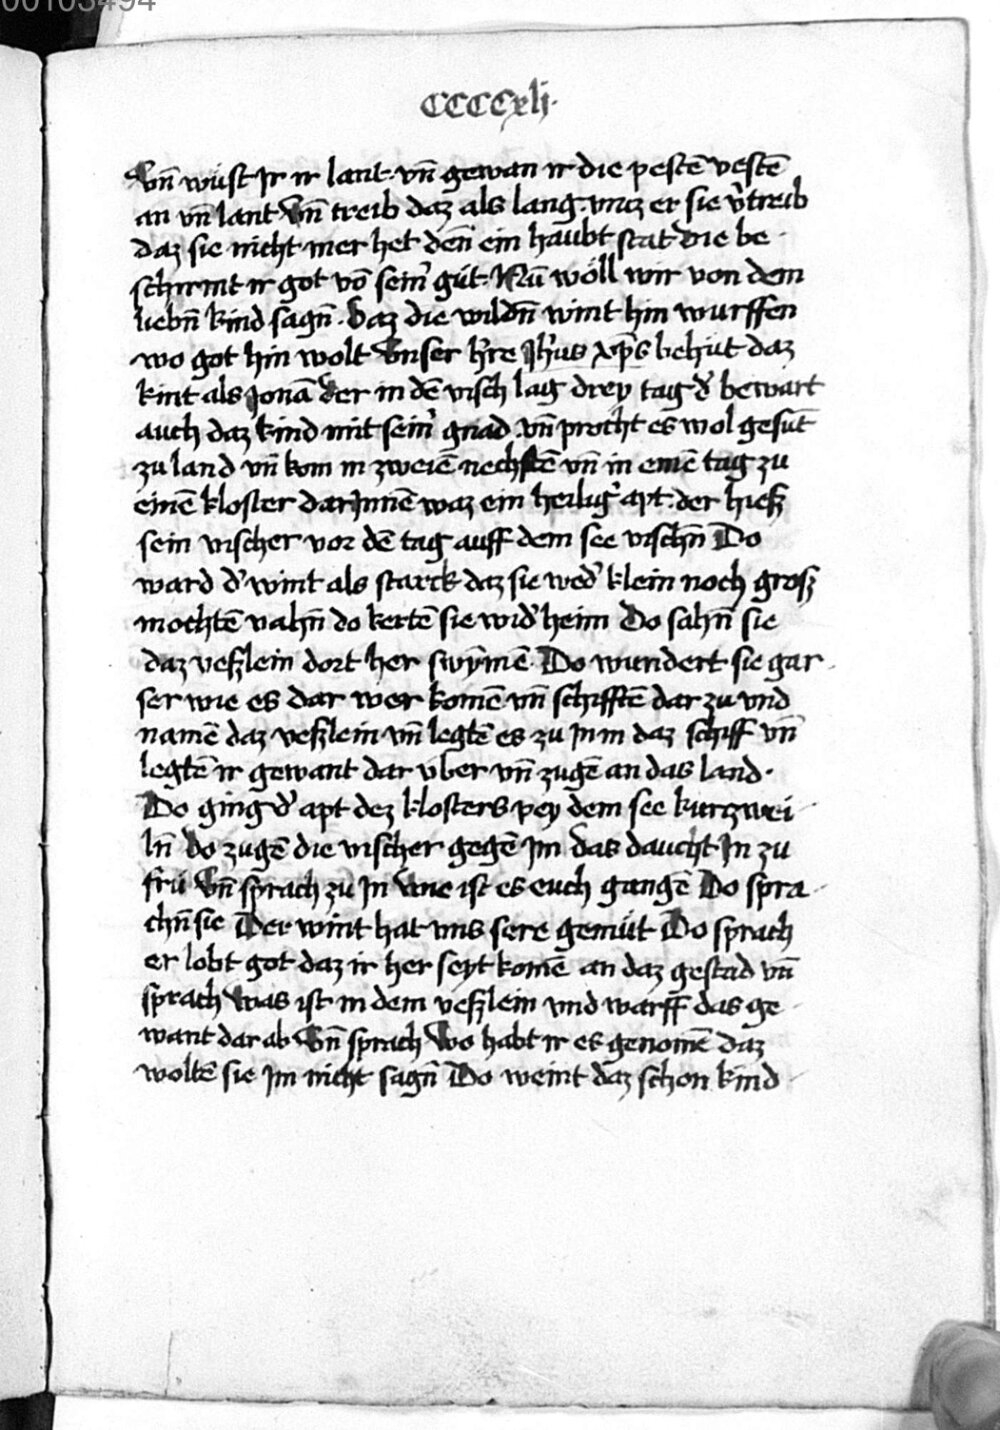 00103494
CCCCxlj.
Vn̄ wüst Jr ir lant. vn̄ gewan ir die pestē vestē
an vn̄ lant Vn̄ treib daz als lang. vncz er sie v̓treib
daz sie nicht mer het den̄ ein haubt stat die be
schirmt ir got vō sein̓ güt. Nū wöll wir von dem
liebn̄ kind sagn̄. Daz die wildn̄ wint hin wurffen
wo got hin wolt Vnser h̓re Jh̓us xp̄s behüt daz
kint als Jonā der in dē visch lag drey tag d̓ bewart
auch daz kind mit sein̓ gnad. vn̄ procht es wol gesūt
zu land vn̄ kom in zweiē nechstē vn̄ in einē tag zu
einē kloster darJnnē waz ein heilig̓ apt. der hieß
sein vischer vor dē tag auff dem see vischn̄ Do
ward d̓ wint als starck daz sie wed̓ klein noch groß
mochtē vahn̄ do kertē sie wid̓ heim Do sahn̄ sie
daz veßlein dort her swȳmē. Do wundert sie gar
ser wie es dar wer komē vn̄ schifftē dar zu vnd
namē daz veßlein vn̄ legtē es zu Jn in daz schiff vn̄
legtē ir gewant dar vber vn̄ zugē an das land.
Do ging d̓ apt dez klosters pey dem see kurzwei
ln̄ do zugē die vischer gegē Jm das daucht Jn zu
frü Vn̄ sprach zu Jn Wie ist es euch gangē Do spra
chn̄ sie Der wint hat vns sere gemüt Do sprach
er lobt got daz ir her seyt komē an daz gestad vn̄
sprach Was ist in dem veßlein vnd warff das ge
want dar ab Vn̄ sprach Wo habt ir es genomē daz
woltē sie Jm nicht sagn̄ Do weint daz schon kind